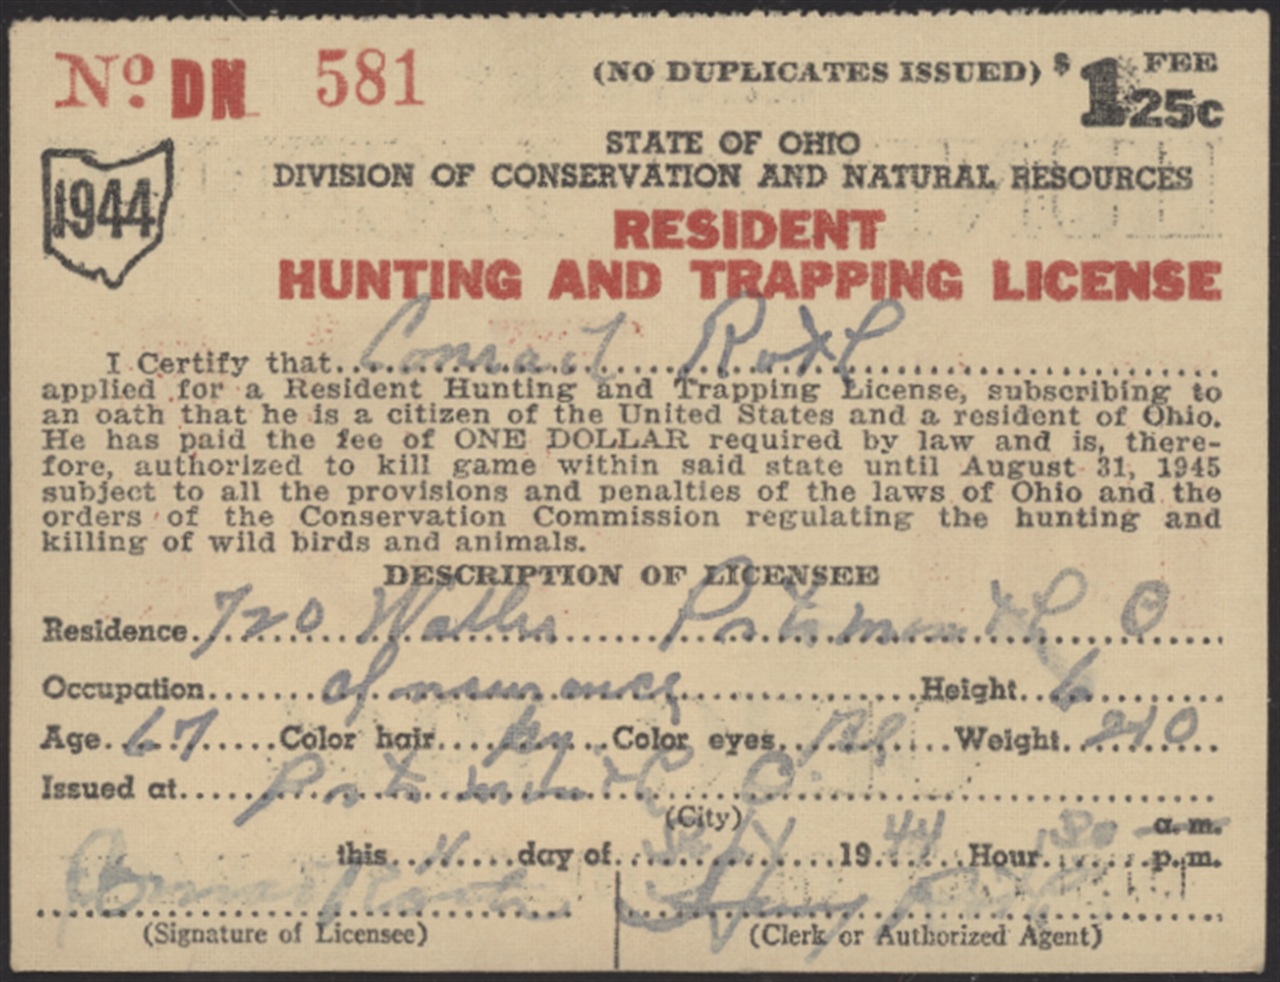 No. DN 581 (NO DUPLICATES ISSUED) $1 FEE
25c
STATE OF OHIO
1944 DIVISION OF CONSERVATION AND NATURAL RESOURCES
RESIDENT
HUNTING AND TRAPPING LICENSE
I Certify that Conrad Roth
applied for a Resident Hunting and Trapping License, subscribing to
an oath that he is a citizen of the United States and a resident of Ohio.
He has paid the fee of ONE DOLLAR required by law and is, there-
fore, authorized to kill game within said state until August 31, 1945
subject to all the provisions and penalties of the laws of Ohio and the
orders of the Conservation Commission regulating the hunting and
killing of wild birds and animals.
DESCRIPTION OF LICENSEE
Residence 720 Waller Portsmouth O
Occupation Insurance Height 6
Age 67 Color hair Color eyes Bl Weight 210
Issued at Portsmouth O
(City)
a.m.
this 11 day of 19 44 Hour p.m.
Conrad Roth
(Signature of Licensee) (Clerk or Authorized Agent)